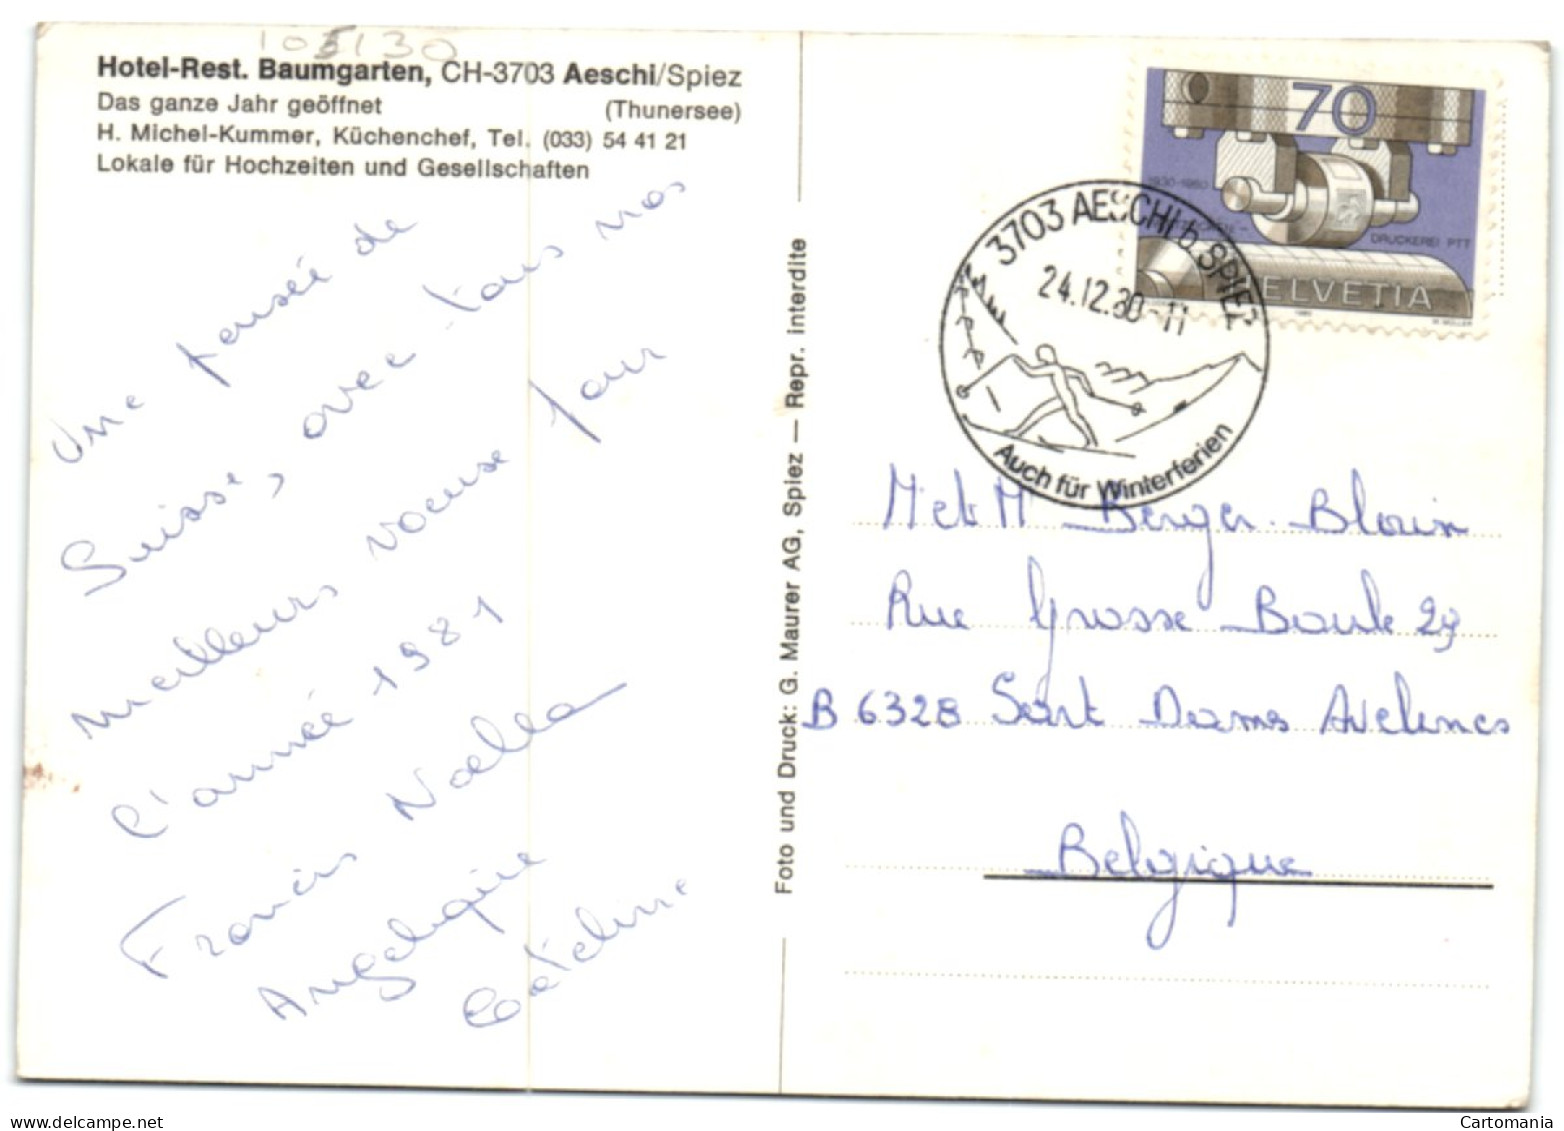 105130
Hotel-Rest. Baumgarten, CH-3703 Aeschi/Spiez
Das ganze Jahr geöffnet (Thunersee)
H. Michel-Kummer, Küchenchef, Tel. (033) 54 41 21
Lokale für Hochzeiten und Gesellschaften
Une pensée de
Suisse, avec tous nos
meilleurs voeux pour
l'année 1981
Francis Noëlla
Angélique
Cateline
Foto und Druck: G. Maurer AG, Spiez — Repr. interdite
70
1930-1980
DRUCKEREI PTT
HELVETIA
3703 AESCHI b. SPIEZ
24.12.80-11
Auch für Winterferien
M et M Berger-Blouin
Rue Grosse Boule 29
B 6328 Sart Dames Avelines
Belgique
delcampe.net
Cartomania